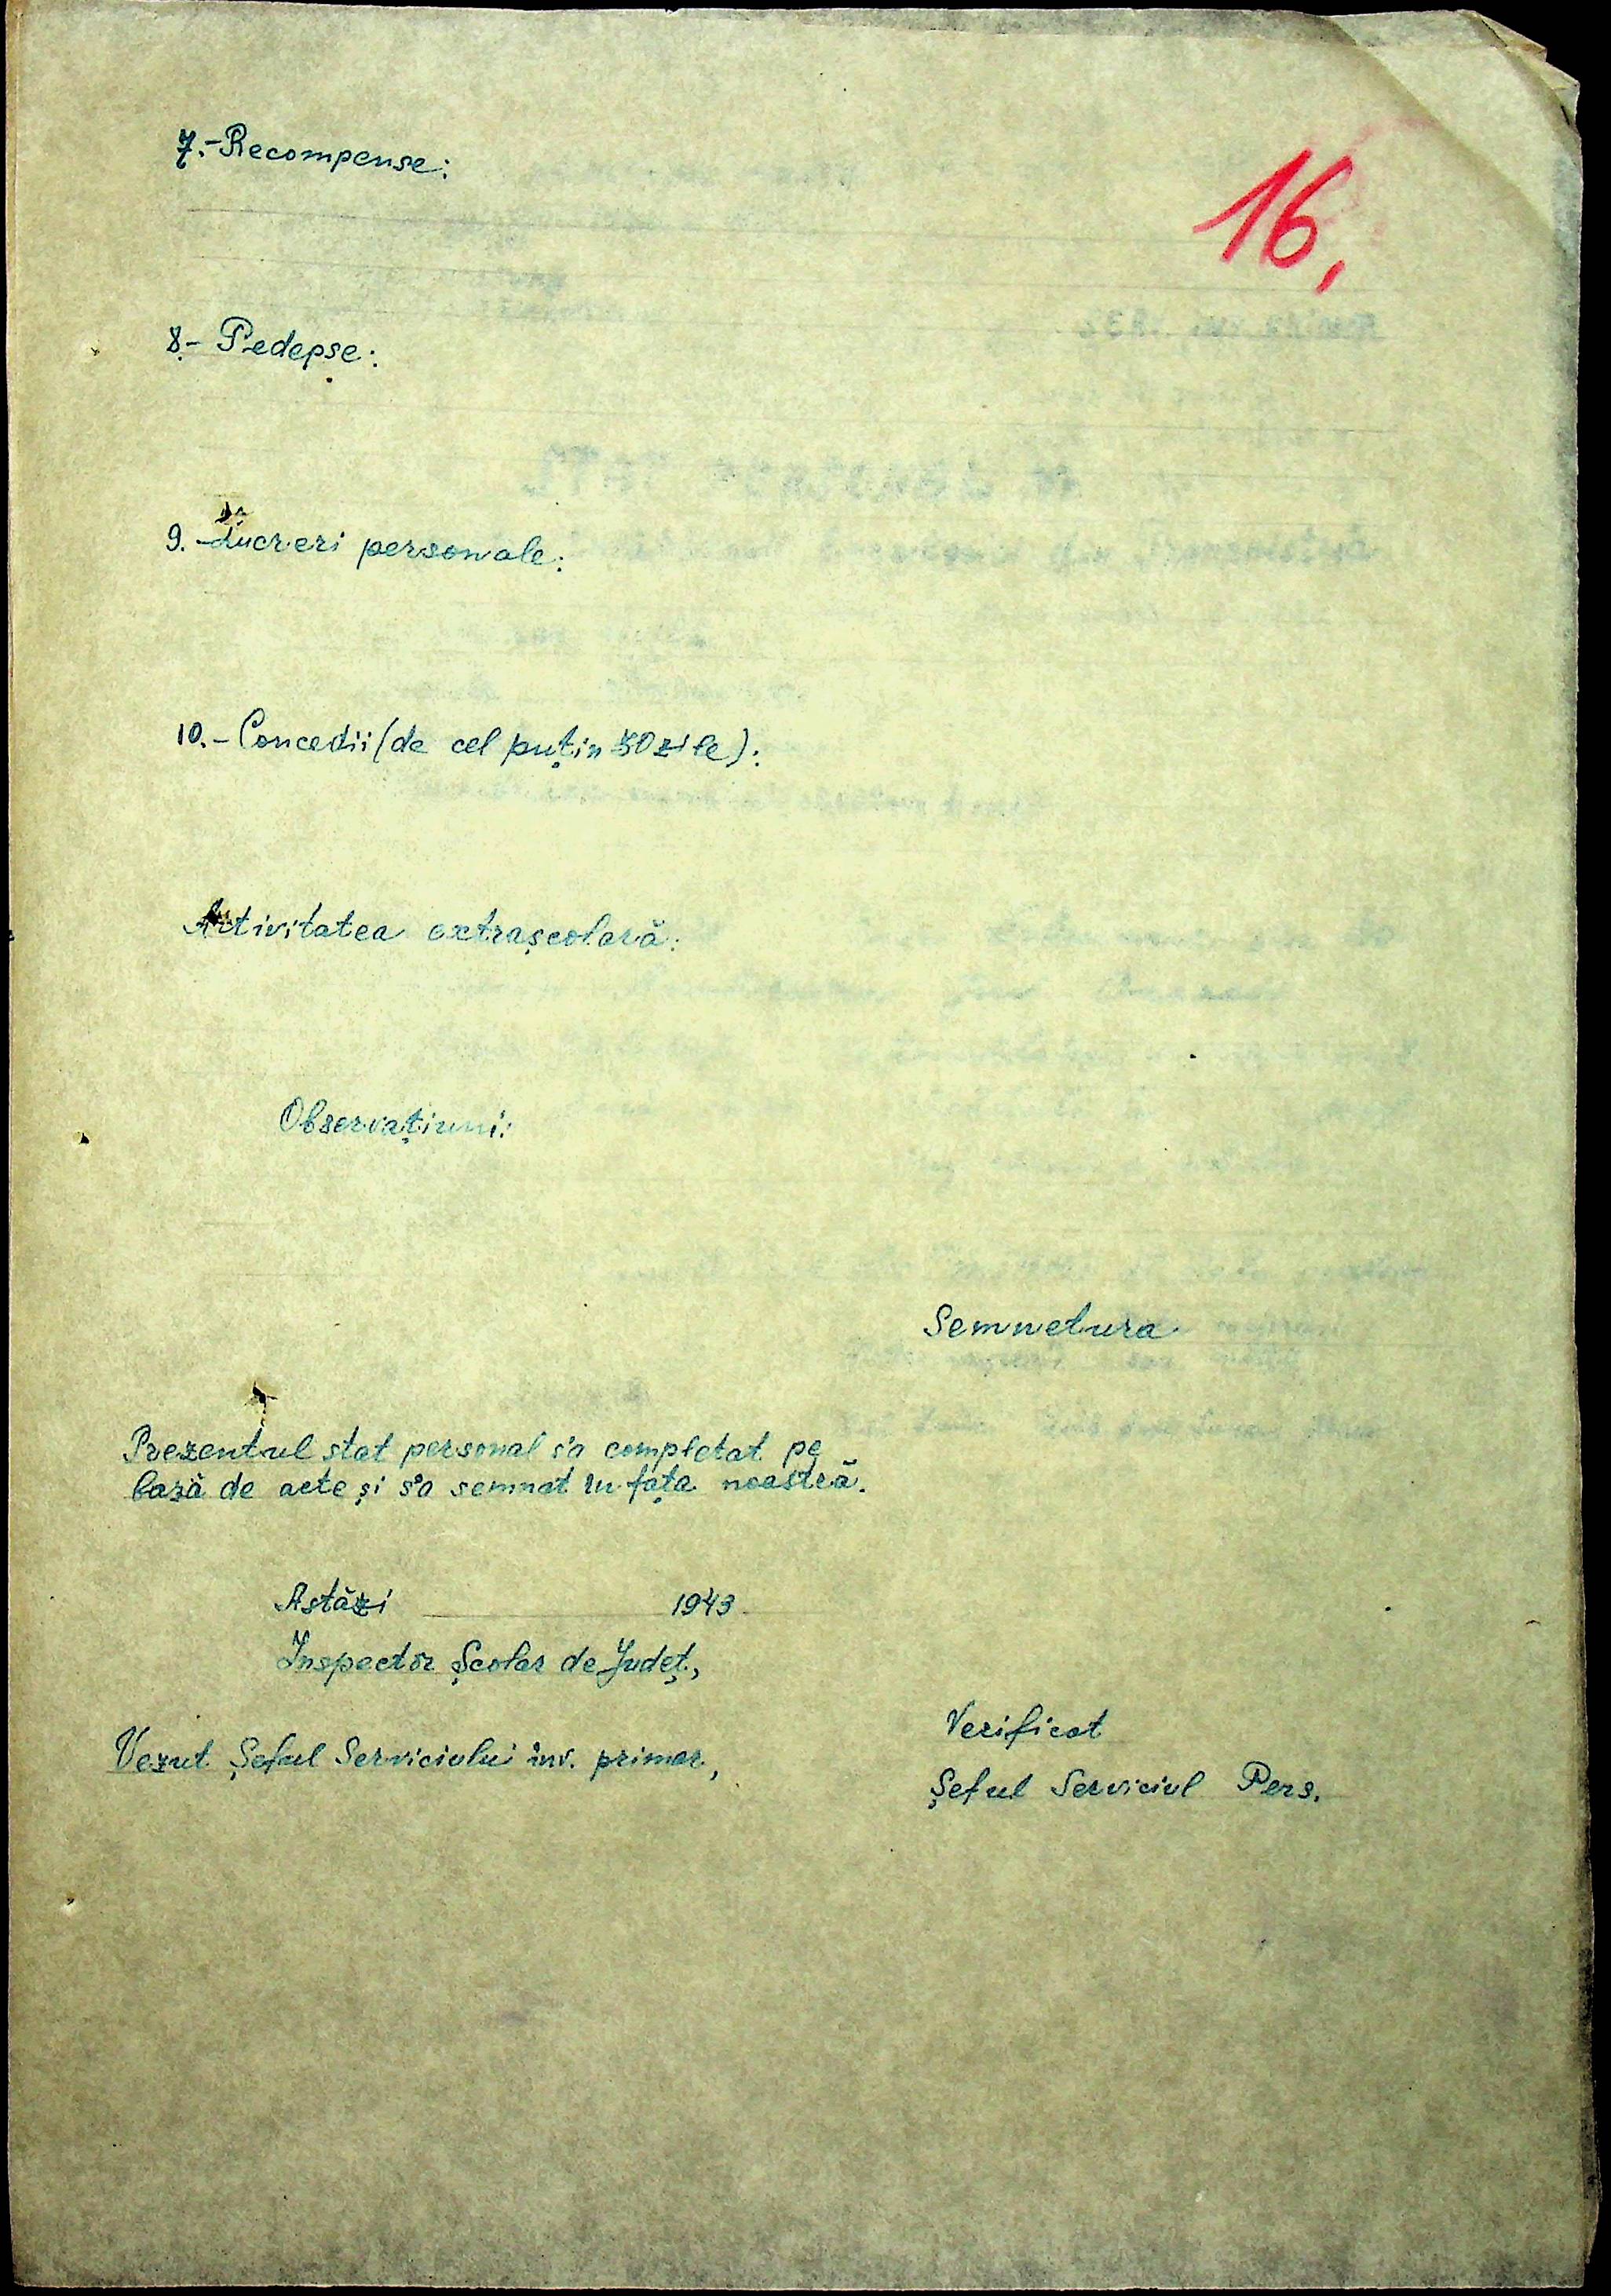 16,
7.-Recompense:
8.- Pedepse:
9.-Lucreri personale:
10.-Concedii (de cel puțin 30 zile):
Activitatea extrașcolară:
Observațiuni:
Semnetura
Prezentul stat personal s'a completat pe
bază de acte și s'a semnat în fața noastră.
Astăzi 1943
Inspector Școlar de Județ,
Vezut Șeful Serviciului înv. primar,
Verificat
Șeful Serviciul Pers.